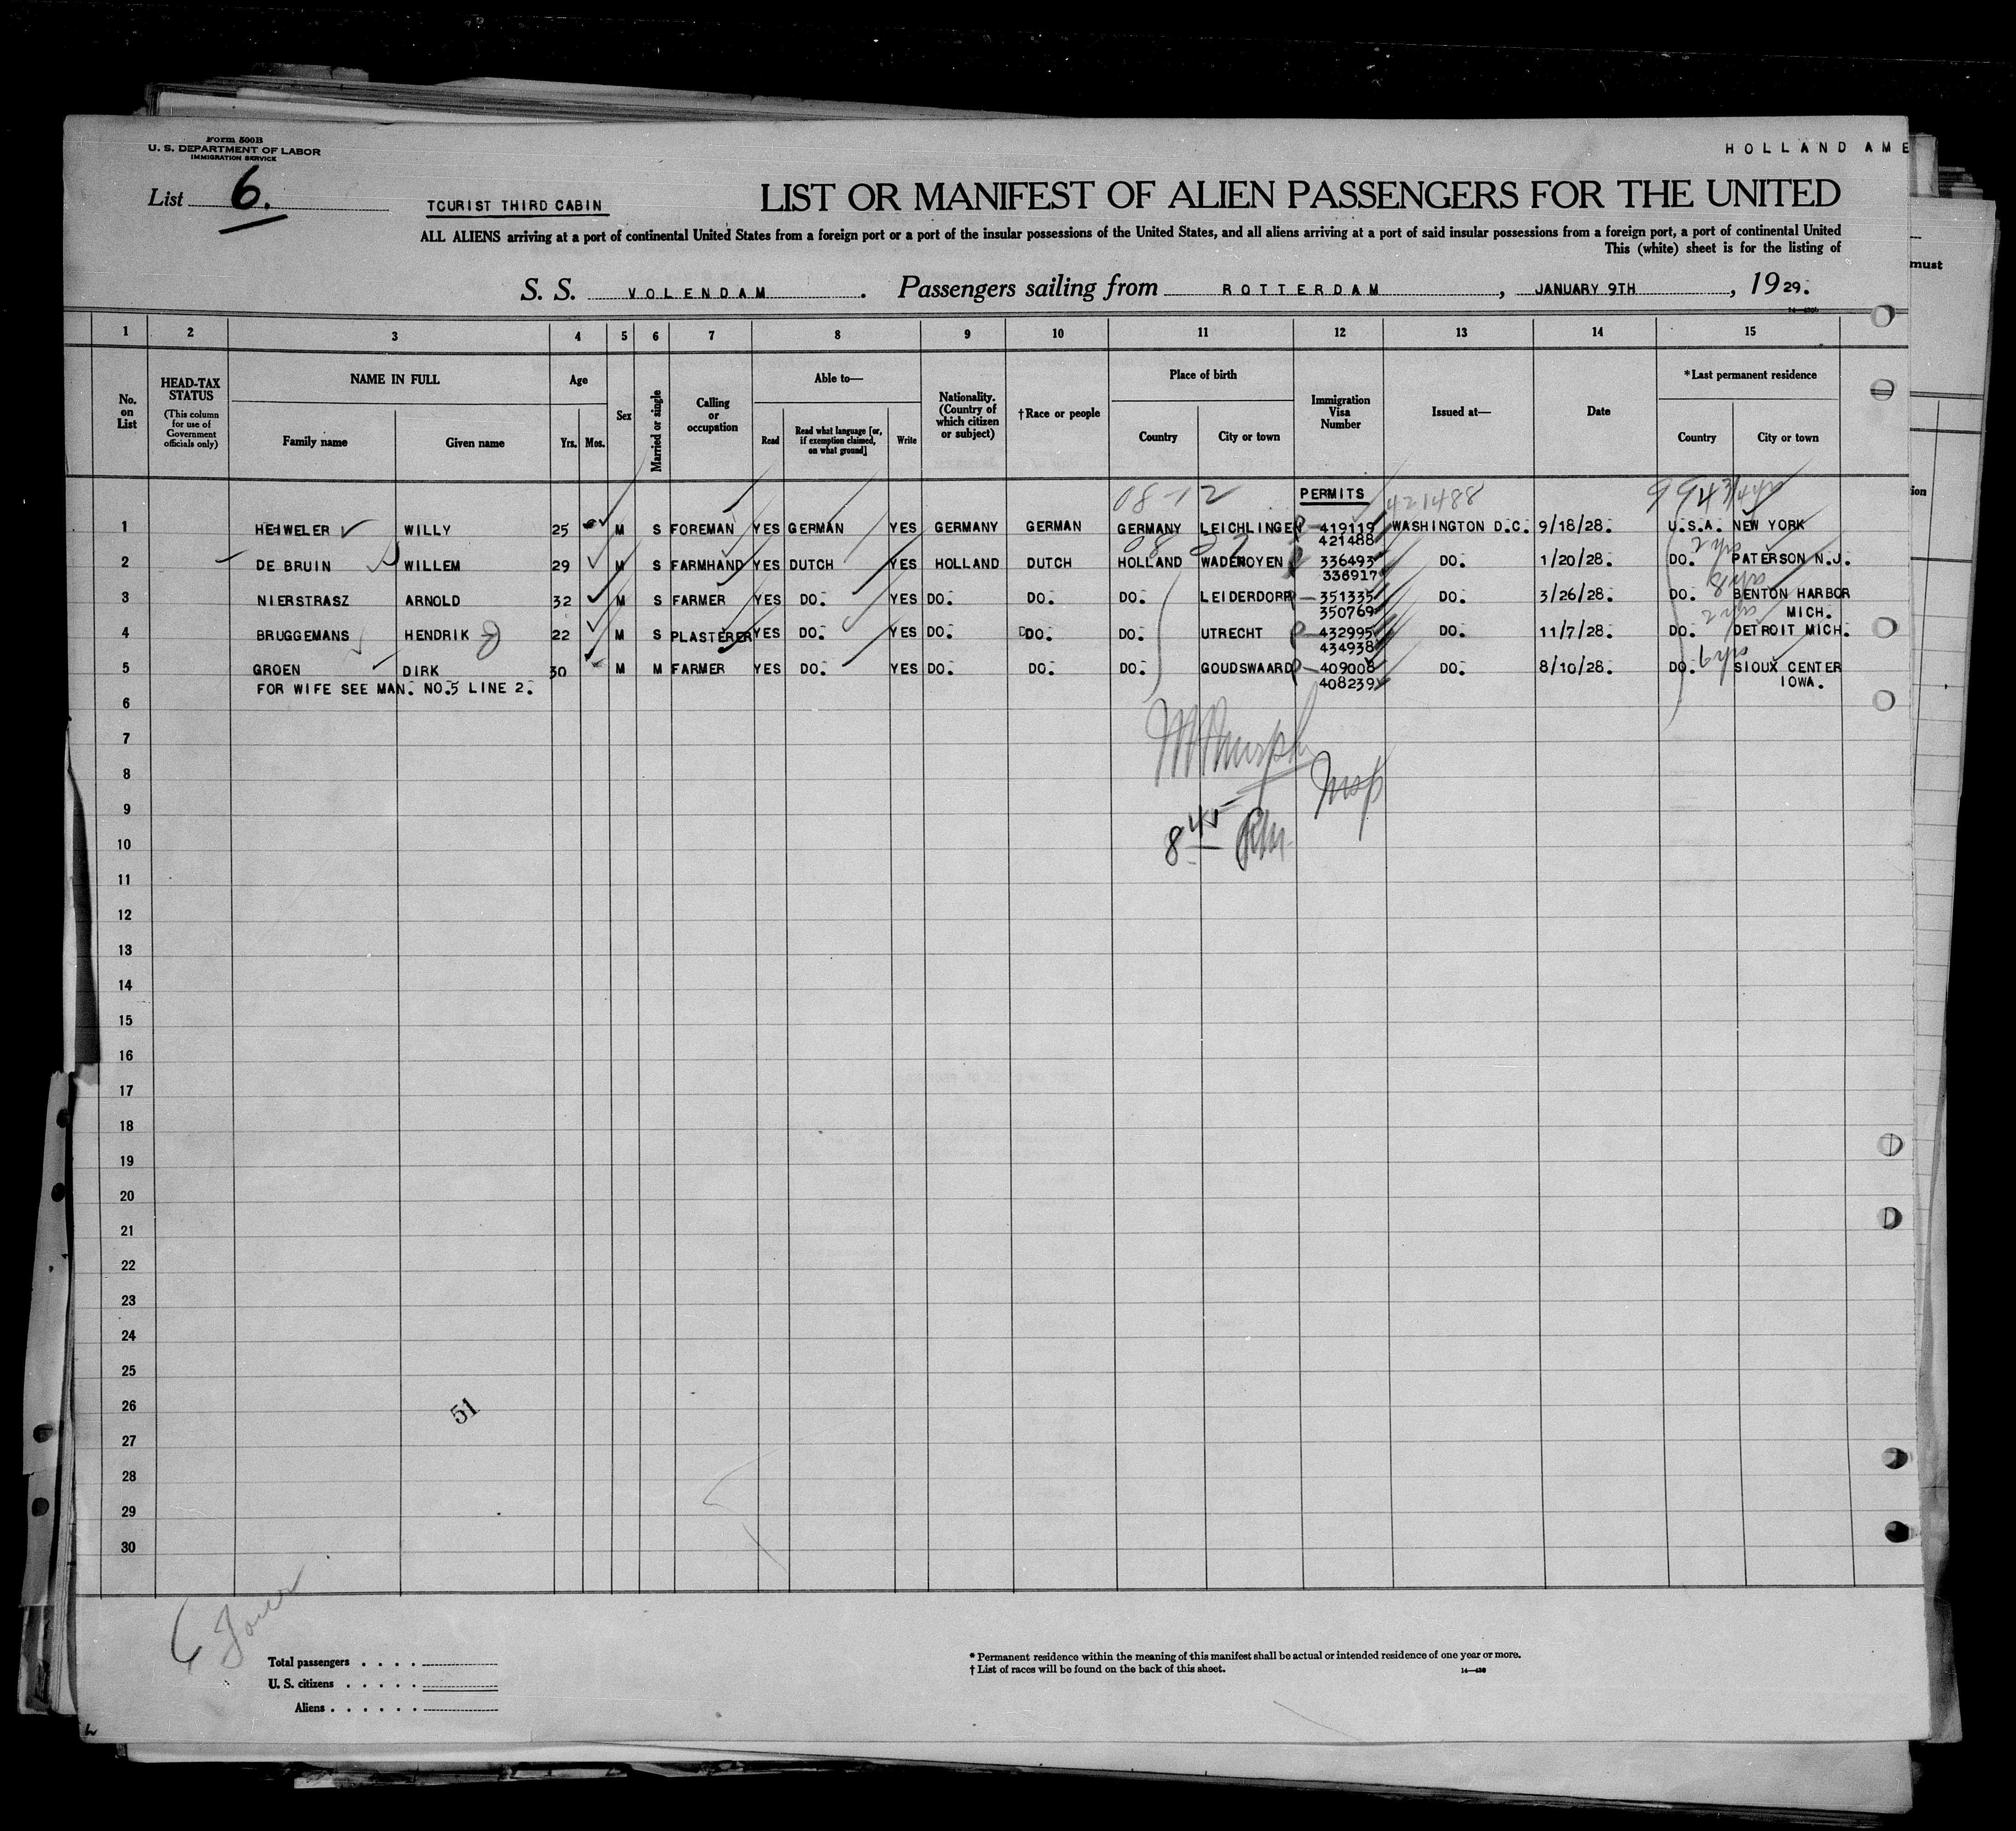 Form 500B
U. S. DEPARTMENT OF LABOR
IMMIGRATION SERVICE
HOLLAND AME
List 6.
TOURIST THIRD CABIN
LIST OR MANIFEST OF ALIEN PASSENGERS FOR THE UNITED
ALL ALIENS arriving at a port of continental United States from a foreign port or a port of the insular possessions of the United States, and all aliens arriving at a port of said insular possessions from a foreign port, a port of continental United
This (white) sheet is for the listing of
must
S. S. VOLENDAM. Passengers sailing from ROTTERDAM, JANUARY 9TH, 1929.
1 2 3 4 5 6 7 8 9 10 11 12 13 14 15
No. on List
HEAD-TAX STATUS
(This column for use of Government officials only)
NAME IN FULL
Family name
Given name
Age
Yrs. Mos.
Sex
Married or single
Calling or occupation
Able to—
Read
Read what language [or, if exemption claimed, on what ground]
Write
Nationality. (Country of which citizen or subject)
†Race or people
Place of birth
Country
City or town
Immigration Visa Number
Issued at—
Date
*Last permanent residence
Country
City or town
ion
08-12 PERMITS 421488
1 HEIWELER WILLY 25 M S FOREMAN YES GERMAN YES GERMANY GERMAN GERMANY LEICHLINGEN 419119 WASHINGTON D.C. 9/18/28. U.S.A. NEW YORK
421488
2 DE BRUIN WILLEM 29 M S FARMHAND YES DUTCH YES HOLLAND DUTCH HOLLAND WADENOYEN 336493 DO. 1/20/28. DO. PATERSON N.J.
336917
3 NIERSTRASZ ARNOLD 32 M S FARMER YES DO. YES DO. DO. DO. LEIDERDORP 351335 DO. 3/26/28. DO. BENTON HARBOR
350769 MICH.
4 BRUGGEMANS HENDRIK 22 M S PLASTERER YES DO. YES DO. DO. DO. UTRECHT 432995 DO. 11/7/28. DO. DETROIT MICH.
434938
5 GROEN DIRK 30 M M FARMER YES DO. YES DO. DO. DO. GOUDSWAARD 409008 DO. 8/10/28. DO. SIOUX CENTER
FOR WIFE SEE MAN. NO.5 LINE 2. 408239 IOWA.
6
7
8
9
8 45
10
11
12
13
14
15
16
17
18
19
20
21
22
23
24
25
26
51
27
28
29
30
6
Total passengers . . . .
U. S. citizens . . . . .
Aliens . . . . . .
* Permanent residence within the meaning of this manifest shall be actual or intended residence of one year or more.
† List of races will be found on the back of this sheet.
14—430